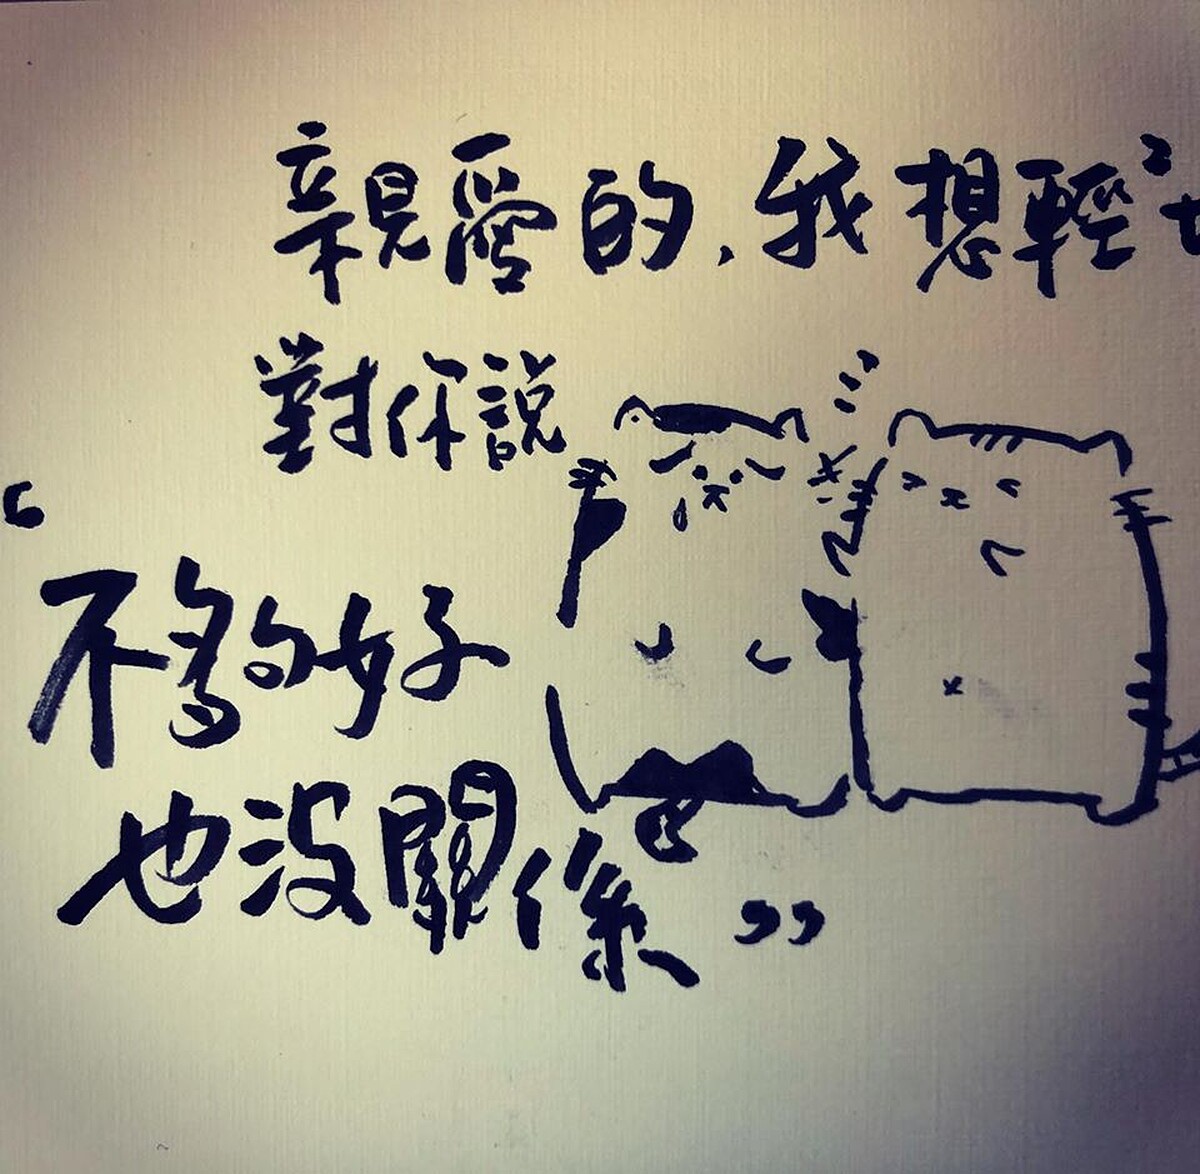 親愛的,我想輕〻
對你說
“不夠好
也沒關係”